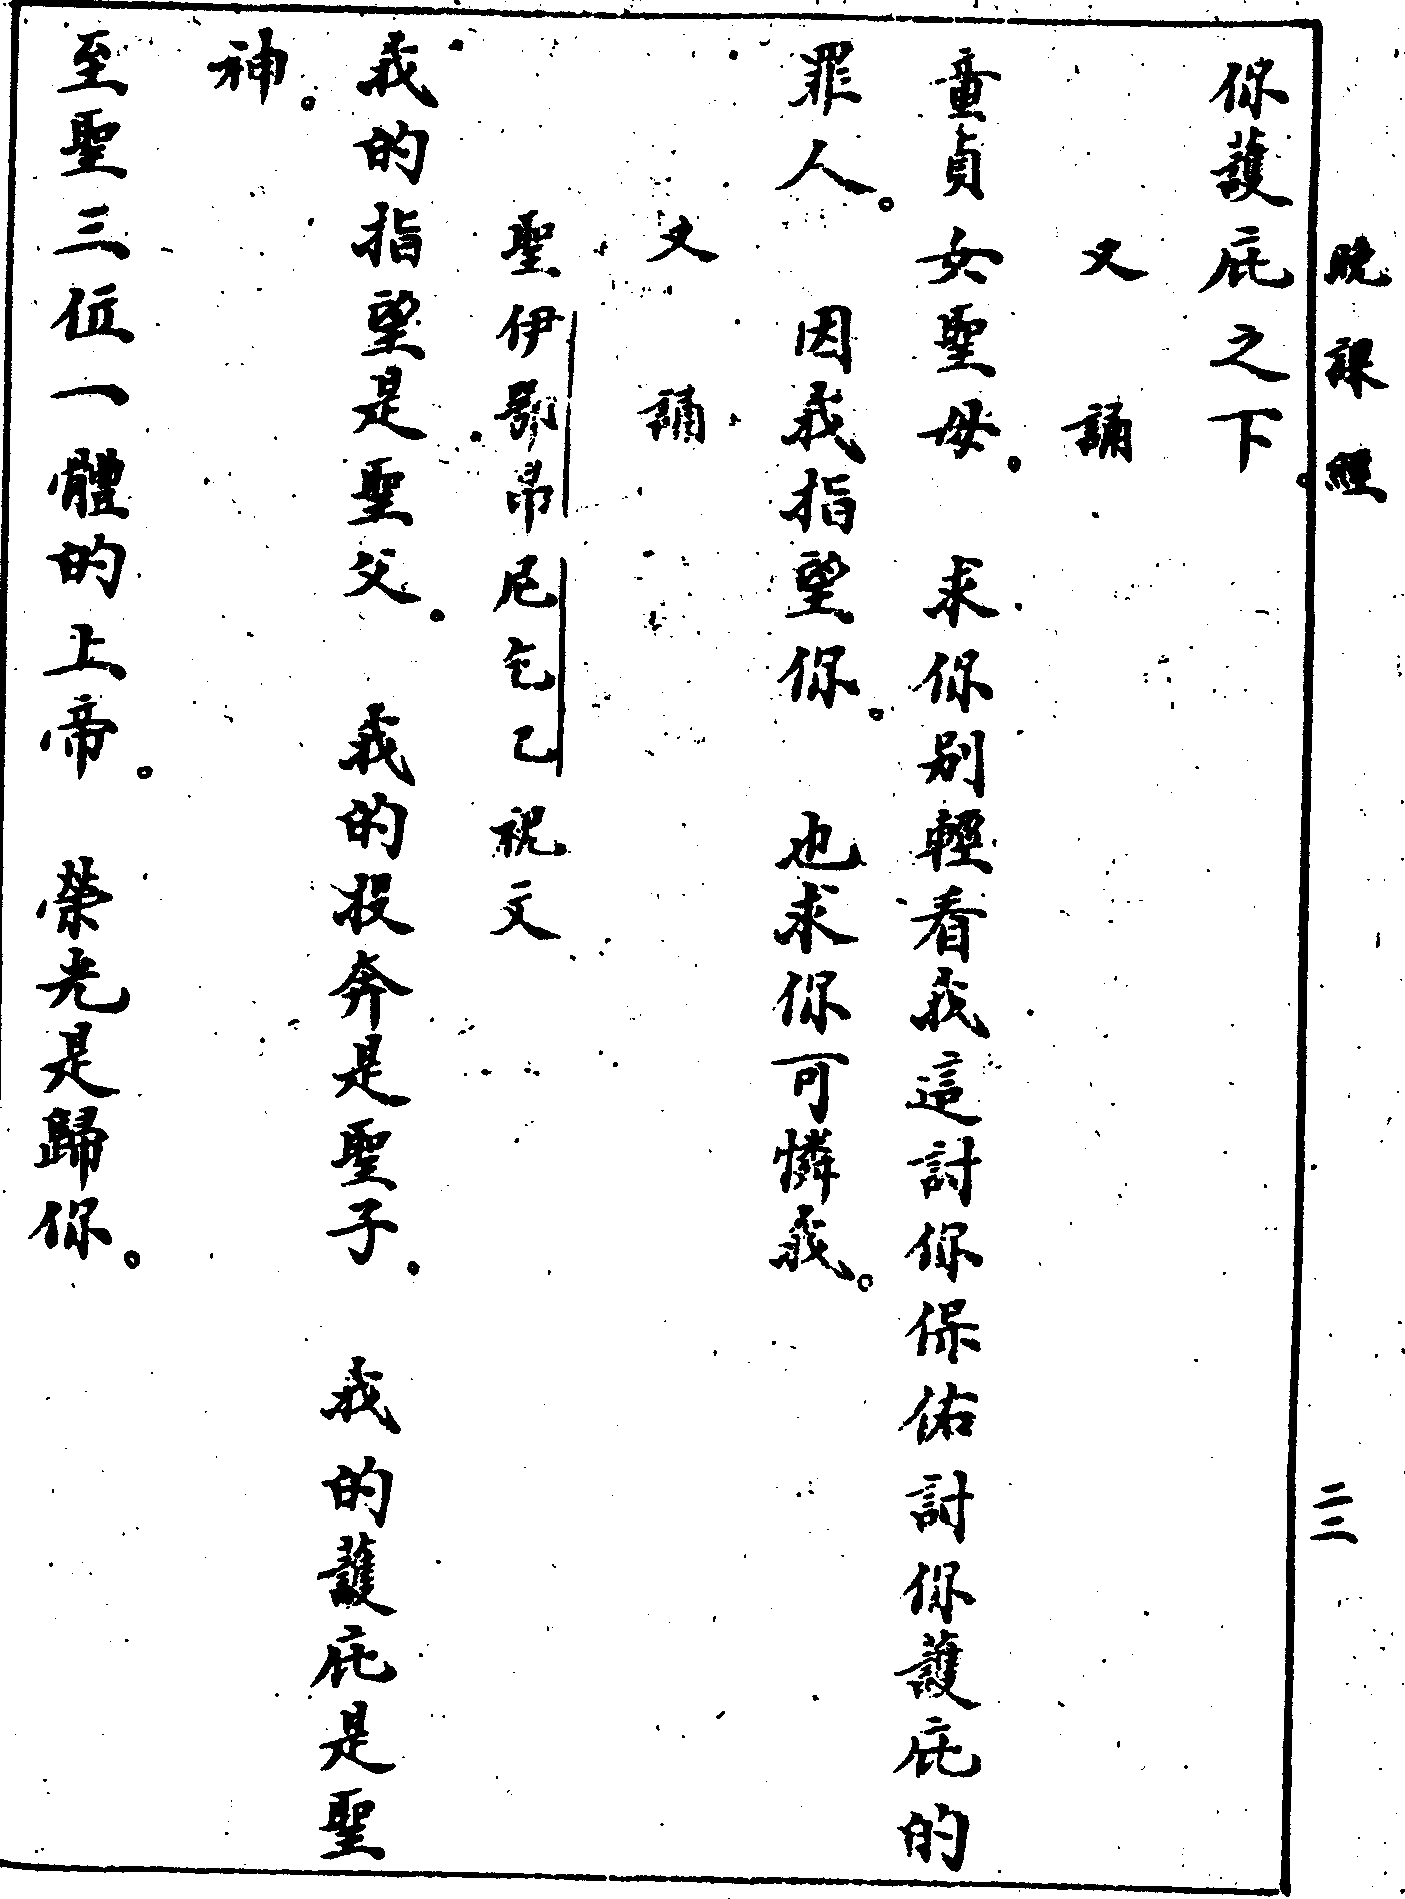 晚課經 二三
你護庇之下。
又誦
童貞女聖母。求你別輕看我這討你保佑討你護庇的
罪人。因我指望你。也求你可憐我。
又誦
聖伊鄂昻尼乞乙祝文
我的指望是聖父。我的投奔是聖子。我的護庇是聖
神。
至聖三位一體的上帝。榮光是歸你。